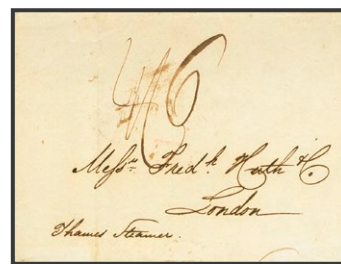 4/6
Messrs. Fredk. Huth & Co
London
Thames Steamer.